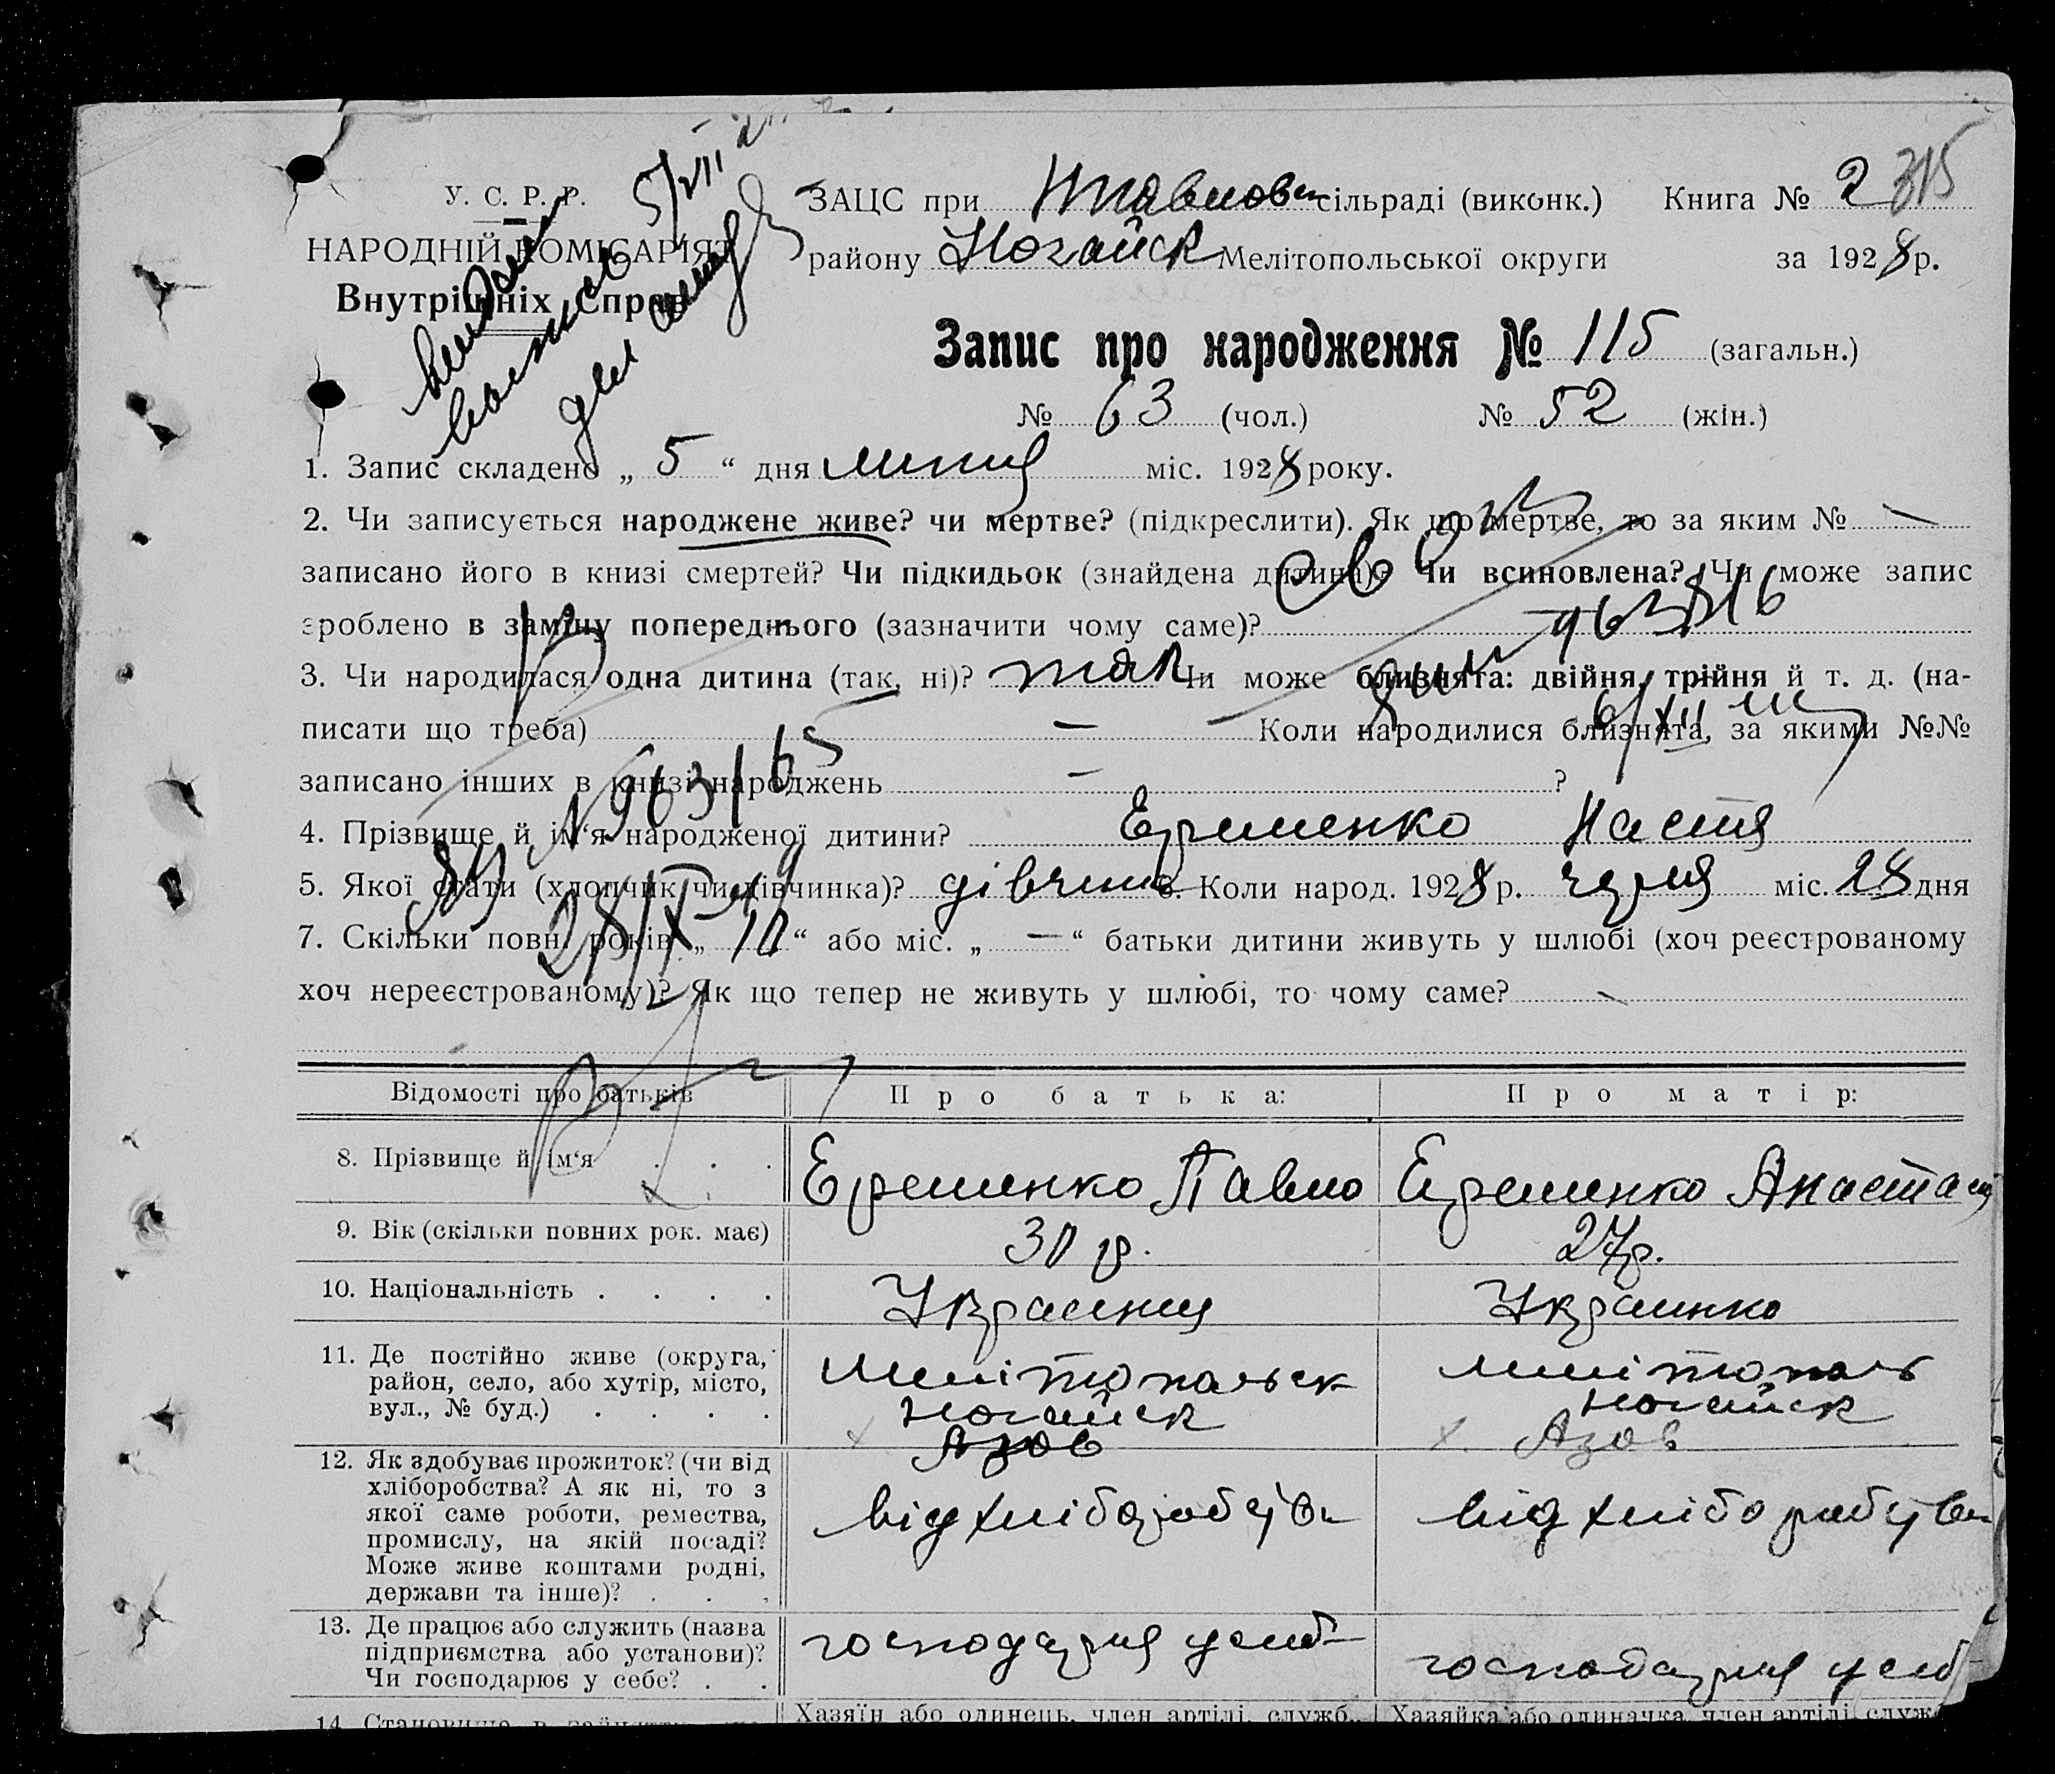 У. С. Р. Р.
НАРОДНІЙ КОМІСАРІЯТ
Внутрішніх Справ
5/VII
ЗАЦС при сільраді (виконк.) Книга № 2 315
району Ногайск Мелітопольської округи за 1928 р.
Запис про народження № 115 (загальн.)
№ 63 (чол.) № 52 (жін.)
1. Запис складено „ 5 “ дня липня міс. 1928 року.
2. Чи записується народжене живе? чи мертве? (підкреслити). Як що мертве, то за яким № —
записано його в книзі смертей? Чи підкидьок (знайдена дитина)? Чи всиновлена? Чи може запис
зроблено в заміну попереднього (зазначити чому саме)?
3. Чи народилася одна дитина (так, ні)? так Чи може близнята: двійня, трійня й т. д. (на-
писати що треба) — Коли народилися близнята, за якими №№
записано інших в книзі народжень — ?
4. Прізвище й ім‘я народженої дитини? Ефременко Настя
5. Якої стати (хлопчик чи дівчинка)? дівчина 6. Коли народ. 1928 р. червня міс. 28 дня
7. Скільки повн. років „ 10 “ або міс. „ — “ батьки дитини живуть у шлюбі (хоч реєстрованому
хоч нереєстрованому)? Як що тепер не живуть у шлюбі, то чому саме?
Відомості про батьків Про батька: Про матір:
8. Прізвище й ім‘я . . . Ефременко Павло Ефременко Анастасия
9. Вік (скільки повних рок. має) 30 р. 27 р.
10. Національність . . . . Украинец Украинка
11. Де постійно живе (округа,
район, село, або хутір, місто,
вул., № буд.) . . . .
Мелітопальск
Ногайск
х Азов
Мелітопаль
Ногайск
х. Азов
12. Як здобуває прожиток? (чи від
хліборобства? А як ні, то з
якої саме роботи, ремества,
промислу, на якій посаді?
Може живе коштами родні,
держави та інше)? . . .
від хліборобства
від хліборобства
13. Де працює або служить (назва
підприємства або установи)?
Чи господарює у себе? . .
господарує у себе
господарує у себе
14. Становище в
Хазяїн або одинець, член артілі, служб.,
Хазяйка або одиначка, член артілі, служ